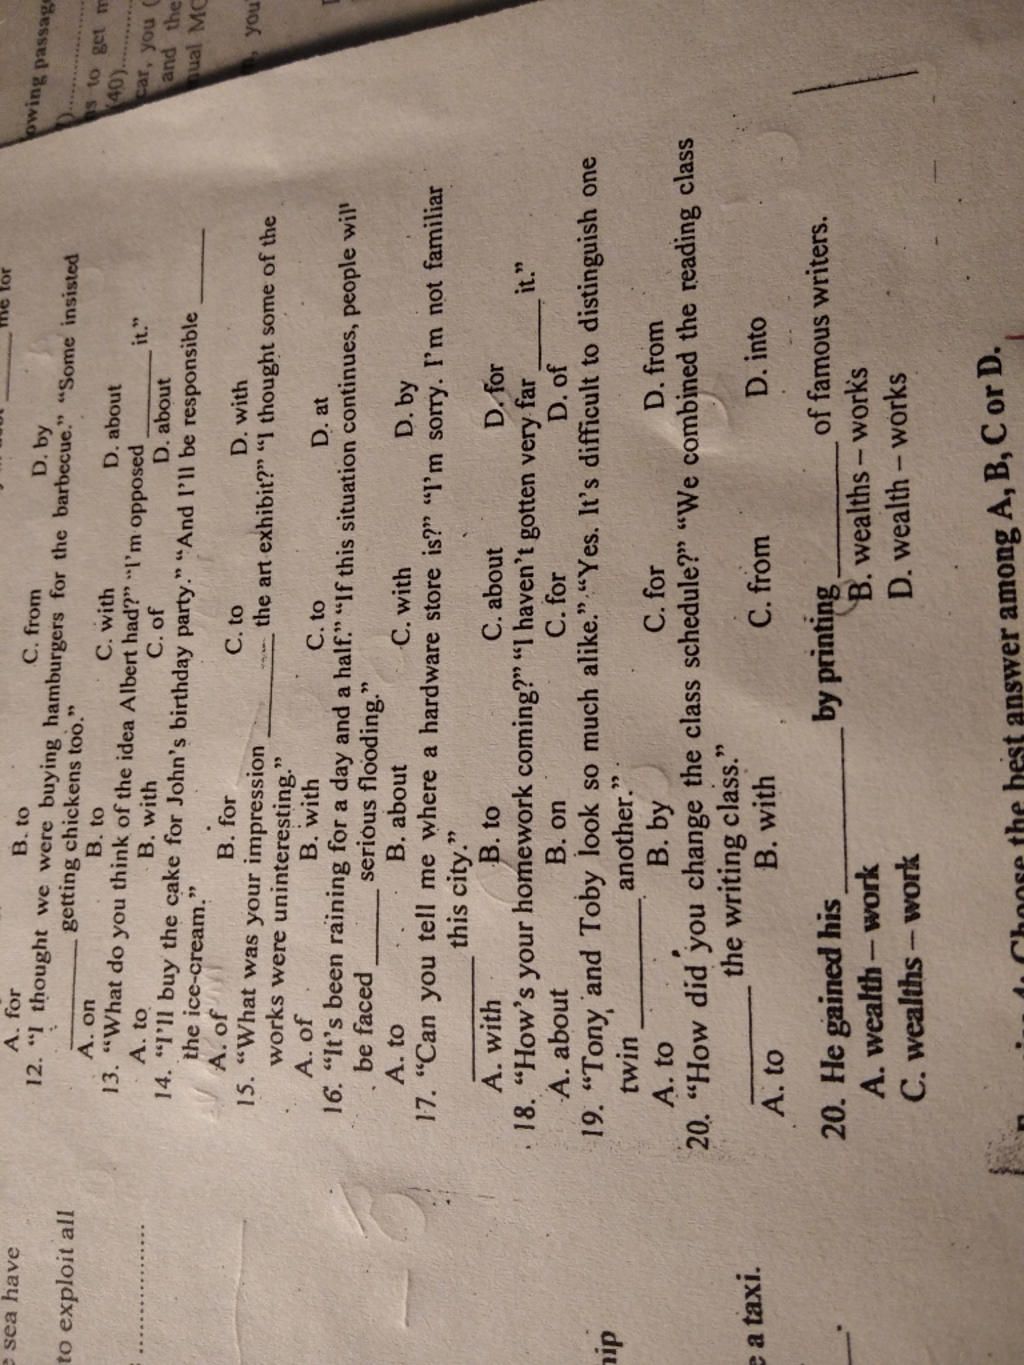 me for
A. for B. to C. from D. by
12. “I thought we were buying hamburgers for the barbecue.” “Some insisted
______ getting chickens too.”
A. on B. to C. with D. about
13. “What do you think of the idea Albert had?” “I’m opposed ______ it.”
A. to B. with C. of D. about
14. “I’ll buy the cake for John’s birthday party.” “And I’ll be responsible ______
the ice-cream.”
A. of B. for C. to D. with
15. “What was your impression ______ the art exhibit?” “I thought some of the
works were uninteresting.”
A. of B. with C. to D. at
16. “It’s been raining for a day and a half.” “If this situation continues, people will
be faced ______ serious flooding.”
A. to B. about C. with D. by
17. “Can you tell me where a hardware store is?” “I’m sorry. I’m not familiar
______ this city.”
A. with B. to C. about D. for
18. “How’s your homework coming?” “I haven’t gotten very far ______ it.”
A. about B. on C. for D. of
19. “Tony and Toby look so much alike.” “Yes. It’s difficult to distinguish one
twin ______ another.”
A. to B. by C. for D. from
20. “How did you change the class schedule?” “We combined the reading class
______ the writing class.”
A. to B. with C. from D. into
20. He gained his ______ by printing ______ of famous writers.
A. wealth – work B. wealths – works
C. wealths – work D. wealth – works
4: Choose the best answer among A, B, C or D.
sea have
to exploit all
..............
hip
a taxi.
owing passag
to get
(40)..............
car, you (
and the
ual MC
you